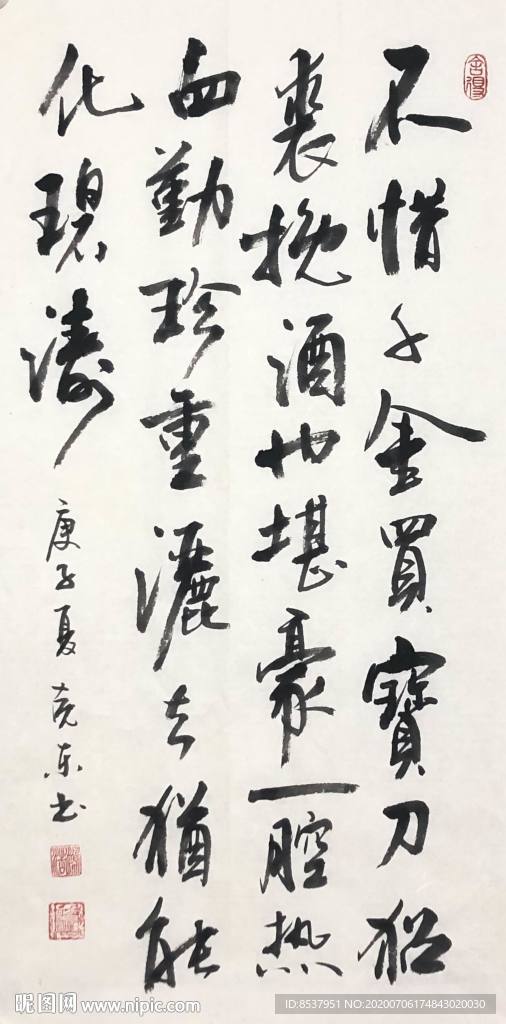 舍得
不惜千金買寶刀貂
裘换酒也堪豪一腔热
血勤珍重灑去猶能
化碧濤
庚子夏克东书
昵图网 www.nipic.com
ID:8537951 NO:20200706174843020030